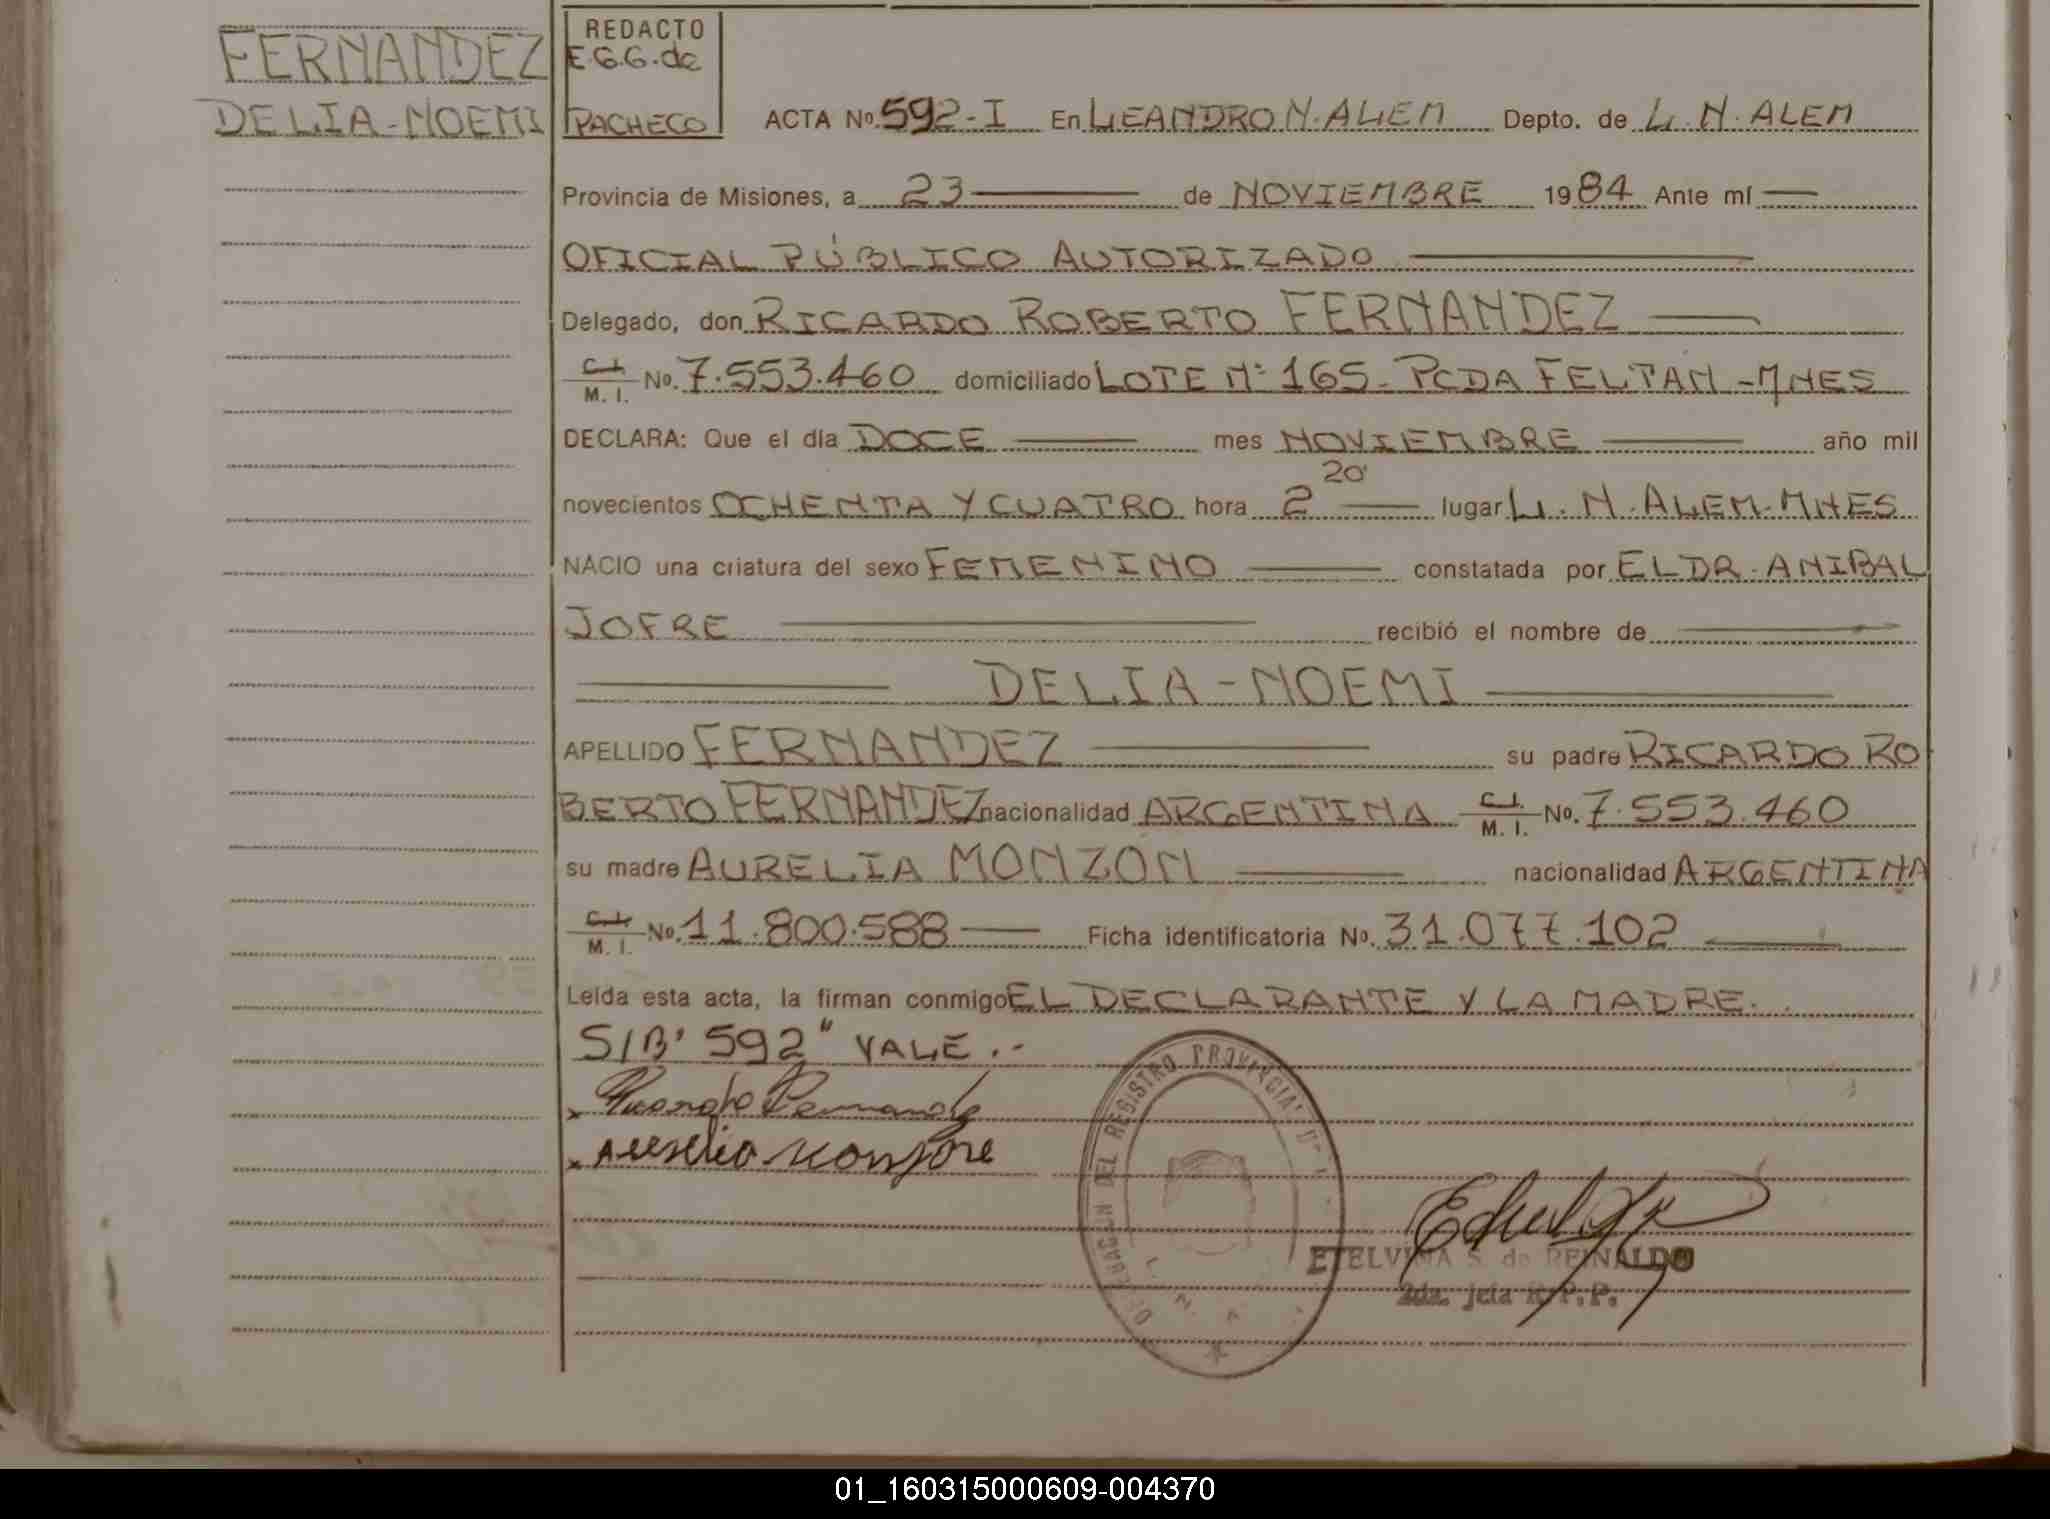 FERNANDEZ
DELIA-NOEMI
REDACTO
E.G.G. de
PACHECO
ACTA Nº 592-I En LEANDRO N. ALEM Depto. de L. N. ALEM
Provincia de Misiones, a 23 de NOVIEMBRE 1984 Ante mí
OFICIAL PÚBLICO AUTORIZADO
Delegado, don RICARDO ROBERTO FERNANDEZ
C.I. / M. I. No. 7.553.460 domiciliado LOTE Nº 165 - PCDA FELTAN - MNES
DECLARA: Que el día DOCE mes NOVIEMBRE año mil
novecientos OCHENTA Y CUATRO hora 2 20' lugar L. N. ALEM-MNES
NACIO una criatura del sexo FEMENINO constatada por EL DR. ANIBAL
JOFRE recibió el nombre de
DELIA-NOEMI
APELLIDO FERNANDEZ su padre RICARDO RO
BERTO FERNANDEZ nacionalidad ARGENTINA C.I. / M. I. No. 7.553.460
su madre AURELIA MONZON nacionalidad ARGENTINA
C.I. / M. I. No. 11.800.588 Ficha identificatoria No. 31.077.102
Leída esta acta, la firman conmigo EL DECLARANTE Y LA MADRE.
S/B' 592" VALE.-
DEL REGISTRO PROVINCIAL
ETELVINA S. de REINALDO
2da. Jefa R.P.P.
01_160315000609-004370